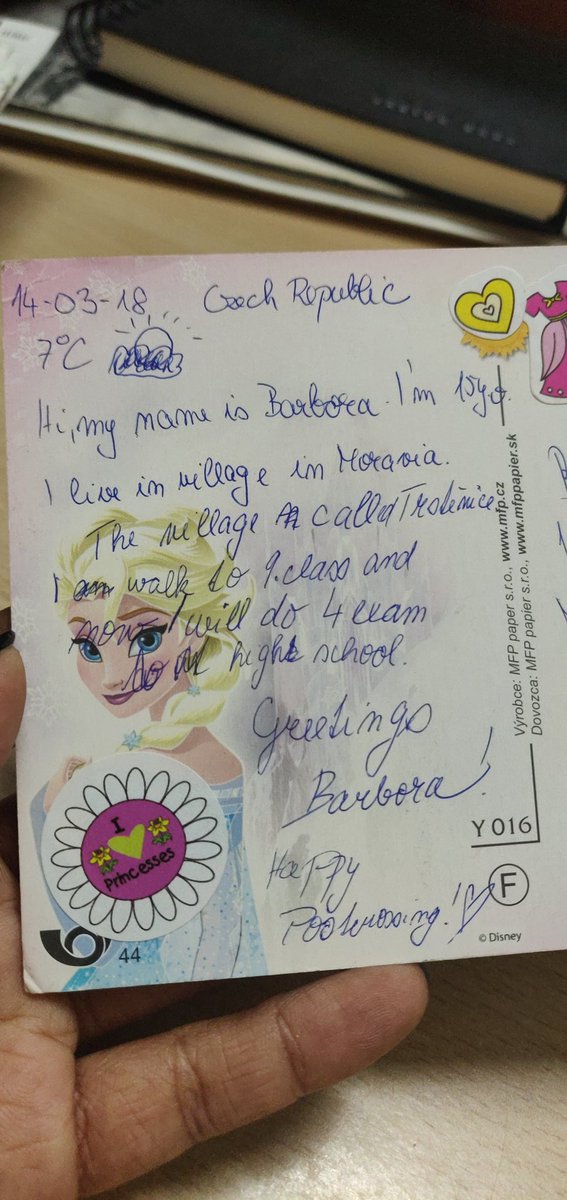 14-03-18 Czech Republic
7°C
Hi, my name is Barbora. I'm 15 y.o.
I live in village in Moravia.
The village called Trstěnice
I walk to 9. class and
now I will do 4 exam
to high school.
Greetings
Barbora!
Happy
Postcrossing!
I
Princesses
44
Výrobce: MFP paper s.r.o., www.mfp.cz
Dovozca: MFP papier s.r.o., www.mfppapier.sk
Y 016
F
© Disney